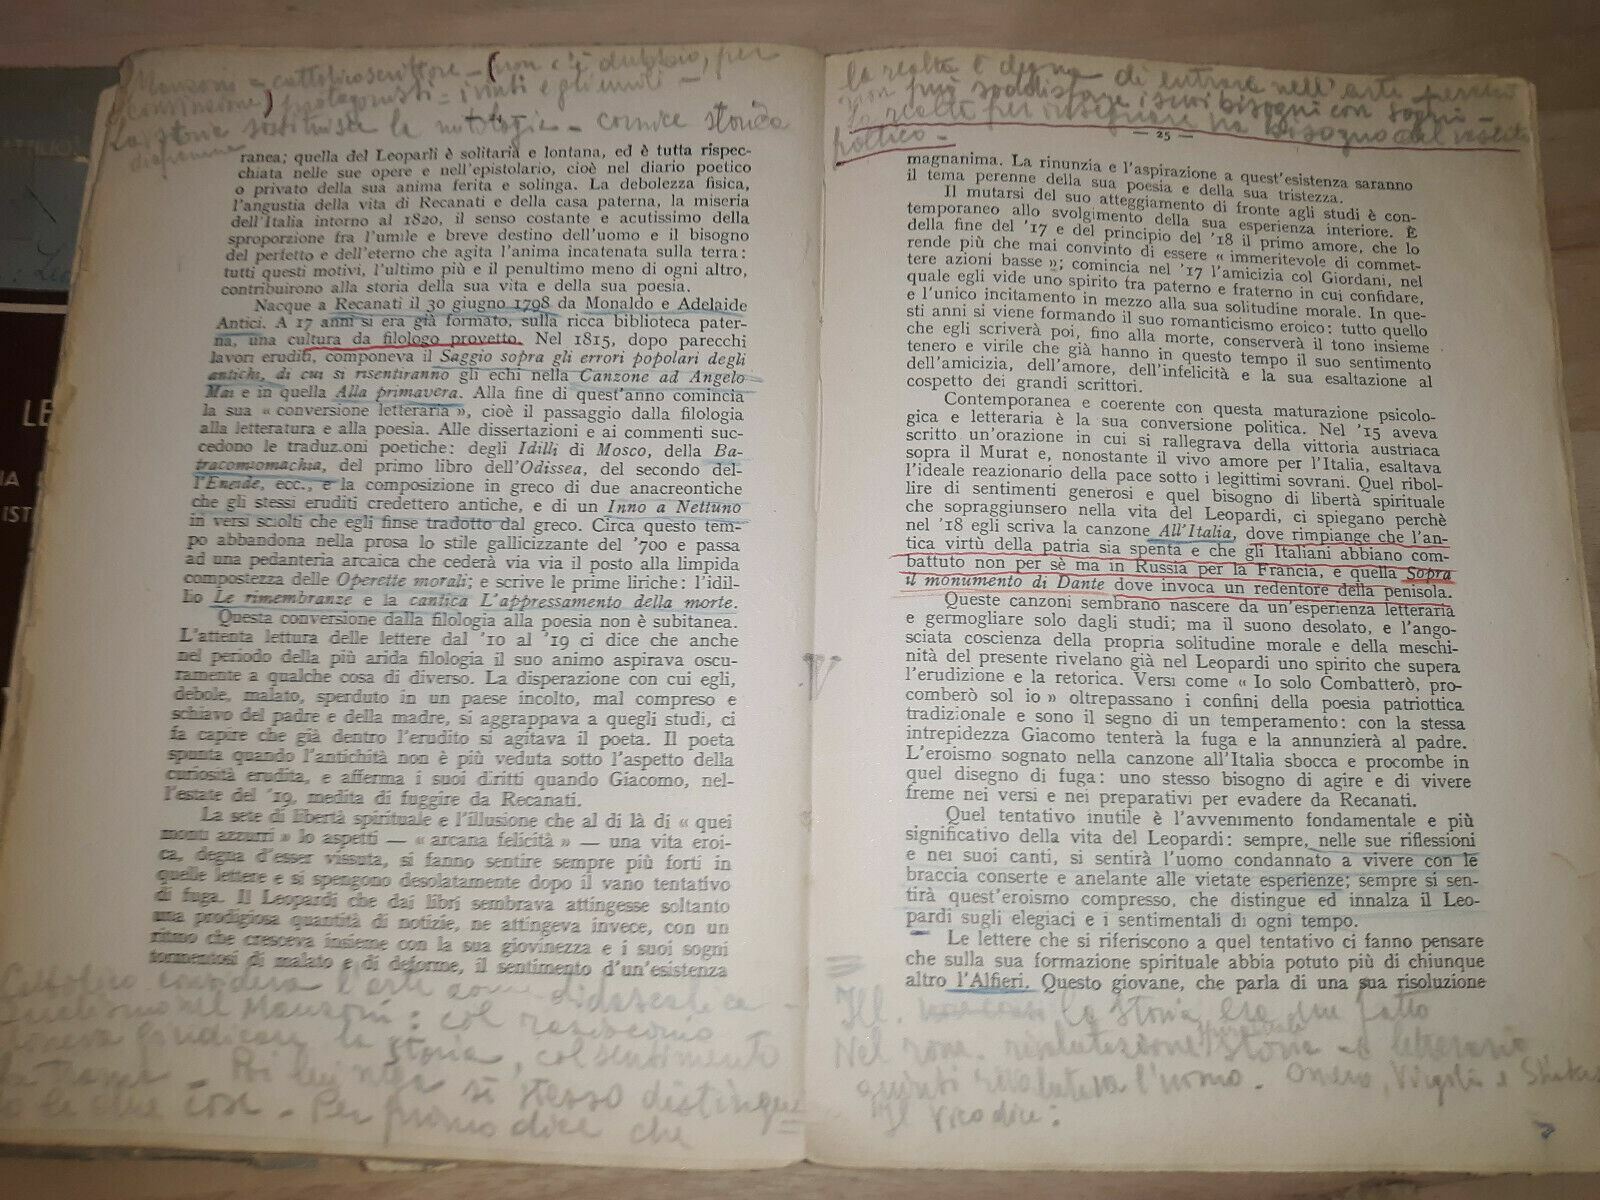 Manzoni = cattolico scrittore - (non c'è dubbio, per
convinzione) protagonisti = i vinti e gli umili -
La storia sostituisce la mitologia - cornice storica
ranea; quella del Leopardi è solitaria e lontana, ed è tutta rispec-
chiata nelle sue opere e nell'epistolario, cioè nel diario poetico
o privato della sua anima ferita e solinga. La debolezza fisica,
l'angustia della vita di Recanati e della casa paterna, la miseria
dell'Italia intorno al 1820, il senso costante e acutissimo della
sproporzione fra l'umile e breve destino dell'uomo e il bisogno
del perfetto e dell'eterno che agita l'anima incatenata sulla terra:
tutti questi motivi, l'ultimo più e il penultimo meno di ogni altro,
contribuirono alla storia della sua vita e della sua poesia.
Nacque a Recanati il 30 giugno 1798 da Monaldo e Adelaide
Antici. A 17 anni si era già formato, sulla ricca biblioteca pater-
na, una cultura da filologo provetto. Nel 1815, dopo parecchi
lavori eruditi, componeva il Saggio sopra gli errori popolari degli
antichi, di cui si risentiranno gli echi nella Canzone ad Angelo
Mai e in quella Alla primavera. Alla fine di quest'anno comincia
la sua « conversione letteraria », cioè il passaggio dalla filologia
alla letteratura e alla poesia. Alle dissertazioni e ai commenti suc-
cedono le traduz.oni poetiche: degli Idilli di Mosco, della Ba-
tracomiomachia, del primo libro dell'Odissea, del secondo del-
l'Eneide, ecc., e la composizione in greco di due anacreontiche
che gli stessi eruditi credettero antiche, e di un Inno a Nettuno
in versi sciolti che egli finse tradotto dal greco. Circa questo tem-
po abbandona nella prosa lo stile gallicizzante del '700 e passa
ad una pedanteria arcaica che cederà via via il posto alla limpida
compostezza delle Operette morali; e scrive le prime liriche: l'idil-
lio Le rimembranze e la cantica L'appressamento della morte.
Questa conversione dalla filologia alla poesia non è subitanea.
L'attenta lettura delle lettere dal '10 al '19 ci dice che anche
nel periodo della più arida filologia il suo animo aspirava oscu-
ramente a qualche cosa di diverso. La disperazione con cui egli,
debole, malato, sperduto in un paese incolto, mal compreso e
schiavo del padre e della madre, si aggrappava a quegli studi, ci
fa capire che già dentro l'erudito si agitava il poeta. Il poeta
spunta quando l'antichità non è più veduta sotto l'aspetto della
curiosità erudita, e afferma i suoi diritti quando Giacomo, nel-
l'estate del '19, medita di fuggire da Recanati.
La sete di libertà spirituale e l'illusione che al di là di « quei
monti azzurri » lo aspetti — « arcana felicità » — una vita eroi-
ca, degna d'esser vissuta, si fanno sentire sempre più forti in
quelle lettere e si spengono desolatamente dopo il vano tentativo
di fuga. Il Leopardi che dai libri sembrava attingesse soltanto
una prodigiosa quantità di notizie, ne attingeva invece, con un
ritmo che cresceva insieme con la sua giovinezza e i suoi sogni
tormentosi di malato e di deforme, il sentimento d'un'esistenza
Cattolico considera l'arte come didascalica -
nel Manzoni: col raziocinio
giudicare la storia, col sentimento
Poi si stesso distingue
cose - Per primo dice che
la realtà è degna di entrare nell'arte perché
non può soddisfare i suoi bisogni con sogni -
La realtà per insegnare ha bisogno del
poetico -
— 25 —
magnanima. La rinunzia e l'aspirazione a quest'esistenza saranno
il tema perenne della sua poesia e della sua tristezza.
Il mutarsi del suo atteggiamento di fronte agli studi è con-
temporaneo allo svolgimento della sua esperienza interiore. È
della fine del '17 e del principio del '18 il primo amore, che lo
rende più che mai convinto di essere « immeritevole di commet-
tere azioni basse »; comincia nel '17 l'amicizia col Giordani, nel
quale egli vide uno spirito tra paterno e fraterno in cui confidare,
e l'unico incitamento in mezzo alla sua solitudine morale. In que-
sti anni si viene formando il suo romanticismo eroico: tutto quello
che egli scriverà poi, fino alla morte, conserverà il tono insieme
tenero e virile che già hanno in questo tempo il suo sentimento
dell'amicizia, dell'amore, dell'infelicità e la sua esaltazione al
cospetto dei grandi scrittori.
Contemporanea e coerente con questa maturazione psicolo-
gica e letteraria è la sua conversione politica. Nel '15 aveva
scritto un'orazione in cui si rallegrava della vittoria austriaca
sopra il Murat e, nonostante il vivo amore per l'Italia, esaltava
l'ideale reazionario della pace sotto i legittimi sovrani. Quel ribol-
lire di sentimenti generosi e quel bisogno di libertà spirituale
che sopraggiunsero nella vita del Leopardi, ci spiegano perchè
nel '18 egli scriva la canzone All'Italia, dove rimpiange che l'an-
tica virtù della patria sia spenta e che gli Italiani abbiano com-
battuto non per sè ma in Russia per la Francia, e quella Sopra
il monumento di Dante dove invoca un redentore della penisola.
Queste canzoni sembrano nascere da un'esperienza letteraria
e germogliare solo dagli studi; ma il suono desolato, e l'ango-
sciata coscienza della propria solitudine morale e della meschi-
nità del presente rivelano già nel Leopardi uno spirito che supera
l'erudizione e la retorica. Versi come « Io solo Combatterò, pro-
comberò sol io » oltrepassano i confini della poesia patriottica
tradizionale e sono il segno di un temperamento: con la stessa
intrepidezza Giacomo tenterà la fuga e la annunzierà al padre.
L'eroismo sognato nella canzone all'Italia sbocca e procombe in
quel disegno di fuga: uno stesso bisogno di agire e di vivere
freme nei versi e nei preparativi per evadere da Recanati.
Quel tentativo inutile è l'avvenimento fondamentale e più
significativo della vita del Leopardi: sempre, nelle sue riflessioni
e nei suoi canti, si sentirà l'uomo condannato a vivere con le
braccia conserte e anelante alle vietate esperienze; sempre si sen-
tirà quest'eroismo compresso, che distingue ed innalza il Leo-
pardi sugli elegiaci e i sentimentali di ogni tempo.
Le lettere che si riferiscono a quel tentativo ci fanno pensare
che sulla sua formazione spirituale abbia potuto più di chiunque
altro l'Alfieri. Questo giovane, che parla di una sua risoluzione
V
Ill. la storia era un fatto
Nel rom. rivalutazione storia - e letteraria
quindi rivalutava l'uomo. Omero, Virgilio e
Il Vico dice:
LE